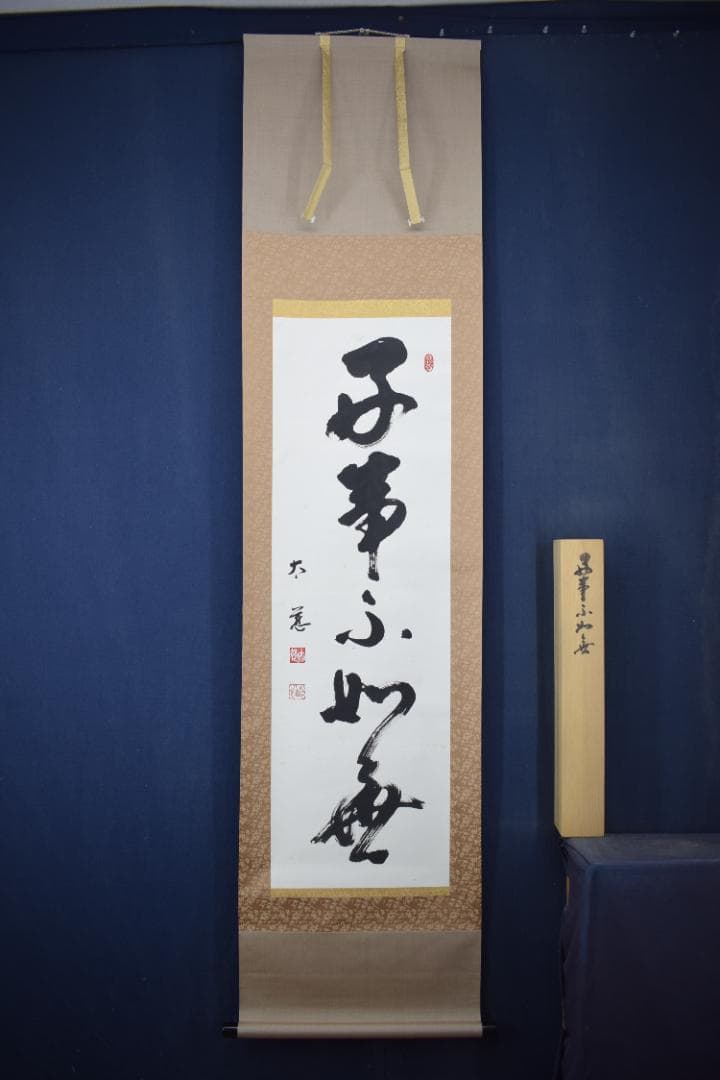 好事不如無
太 慈
好事不如無